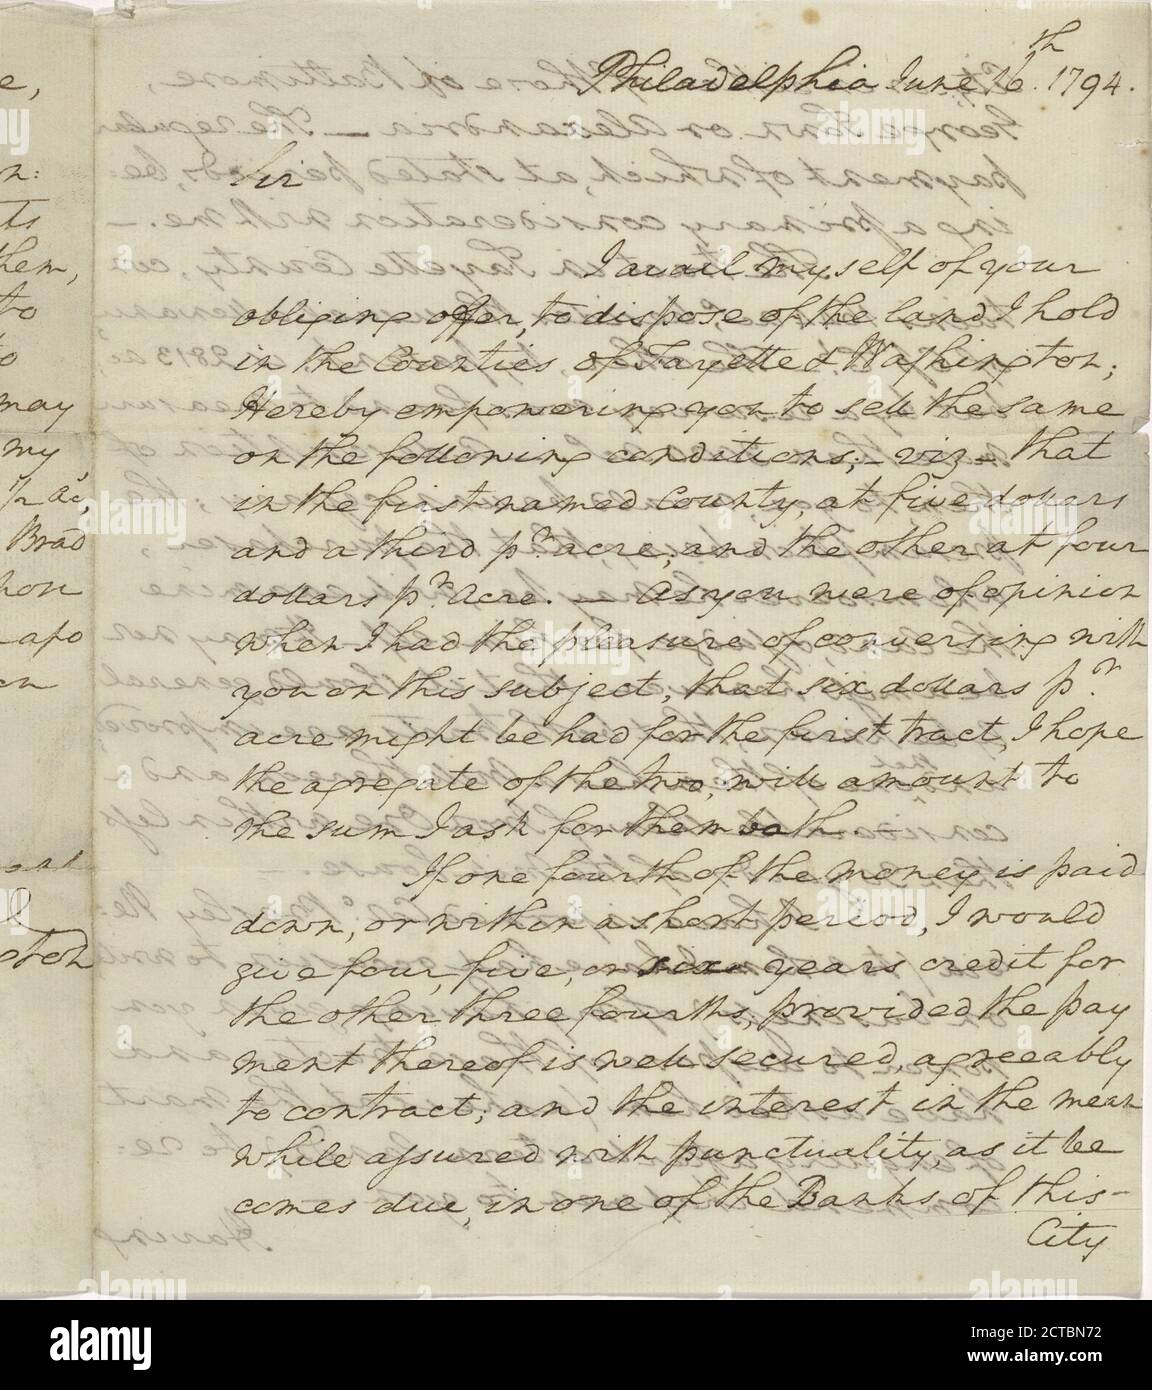 Philadelphia June 16th. 1794.
Sir
I avail myself of your
obliging offer, to dispose of the land I hold
in the Counties of Fayette & Washington;
Hereby empowering you to sell the same
on the following conditions; – viz – that
in the first named County, at five dollars
and a third pr. acre; and the other at four
dollars pr. Acre. — As you were of opinion
when I had the pleasure of conversing with
you on this subject, that six dollars pr.
acre might be had for the first tract, I hope
the agregate of the two, will amount to
the sum I ask for them both. –
If one fourth of the money is paid
down, or within a short period, I would
give four, five, or six years credit for
the other three fourths; provided the pay
ment thereof is well secured, agreeably
to contract; and the interest in the mean
while assured with punctuality, as it be
comes due, in one of the Banks of this–
City
e,
n:
ts
them,
to
to
may
my
Brad
hon
apo
en
alamy
Image ID: 2CTBN72
www.alamy.com